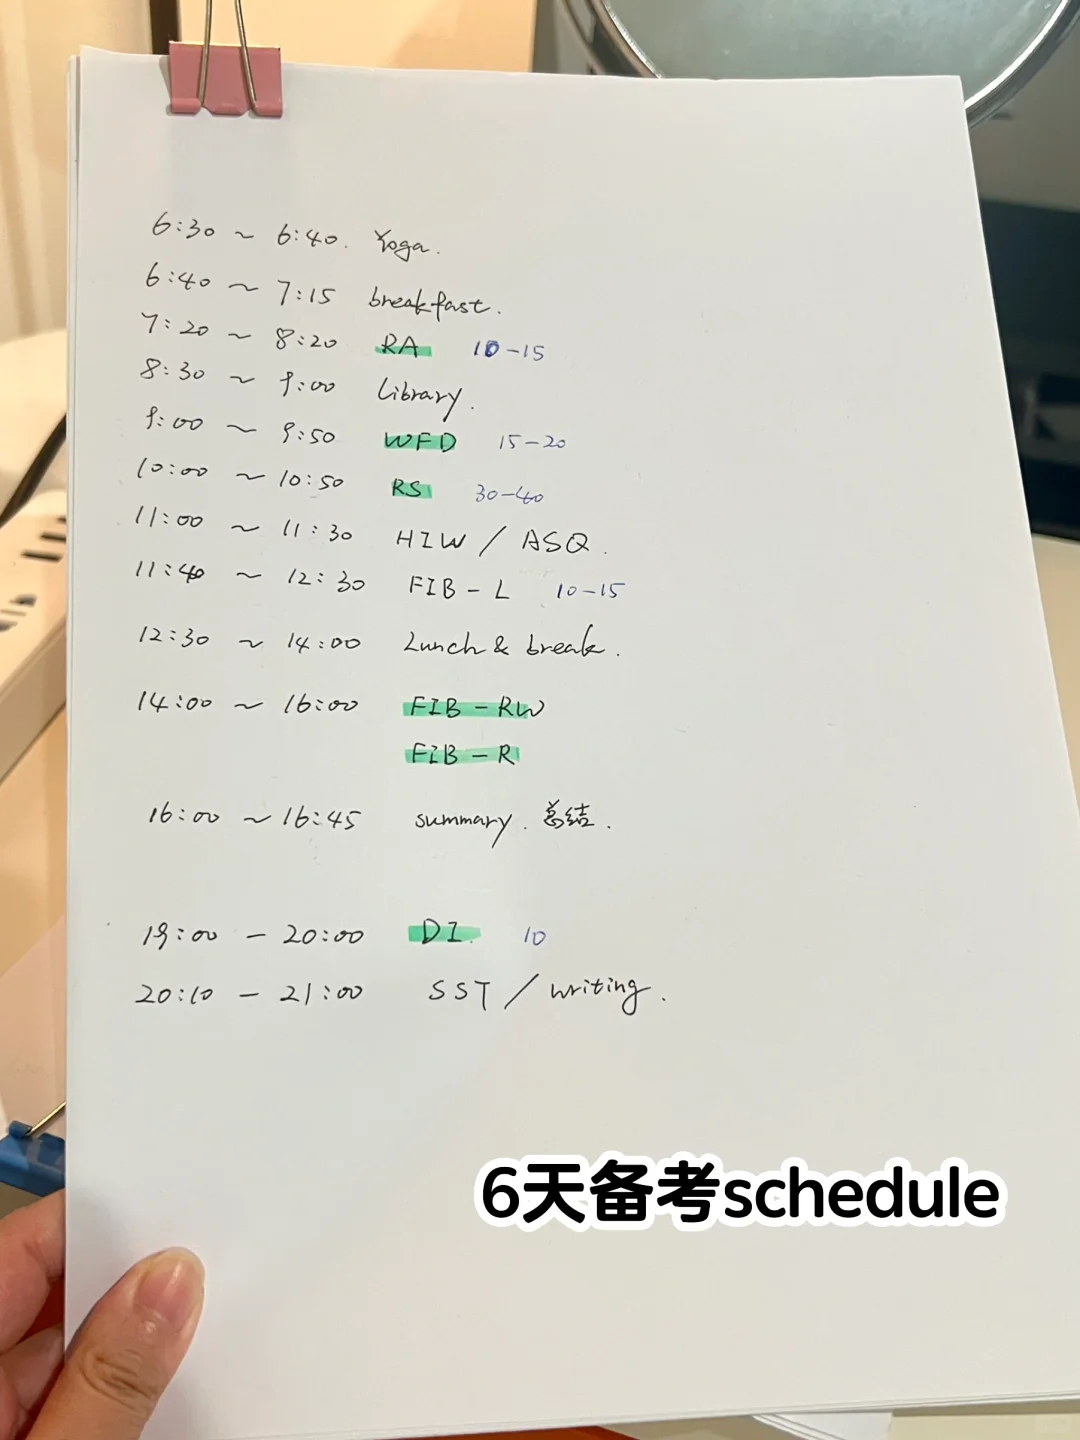 6:30 ~ 6:40. Yoga.
6:40 ~ 7:15 breakfast.
7:20 ~ 8:20 RA 10-15
8:30 ~ 9:00 Library.
9:00 ~ 9:50 WFD 15-20
10:00 ~ 10:50 RS 30-40
11:00 ~ 11:30 HIW / ASQ.
11:40 ~ 12:30 FIB - L 10-15
12:30 ~ 14:00 Lunch & break.
14:00 ~ 16:00 FIB - RW
FIB - R
16:00 ~ 16:45 summary. 总结.
19:00 - 20:00 DI. 10
20:10 - 21:00 SST / writing.
6天备考schedule